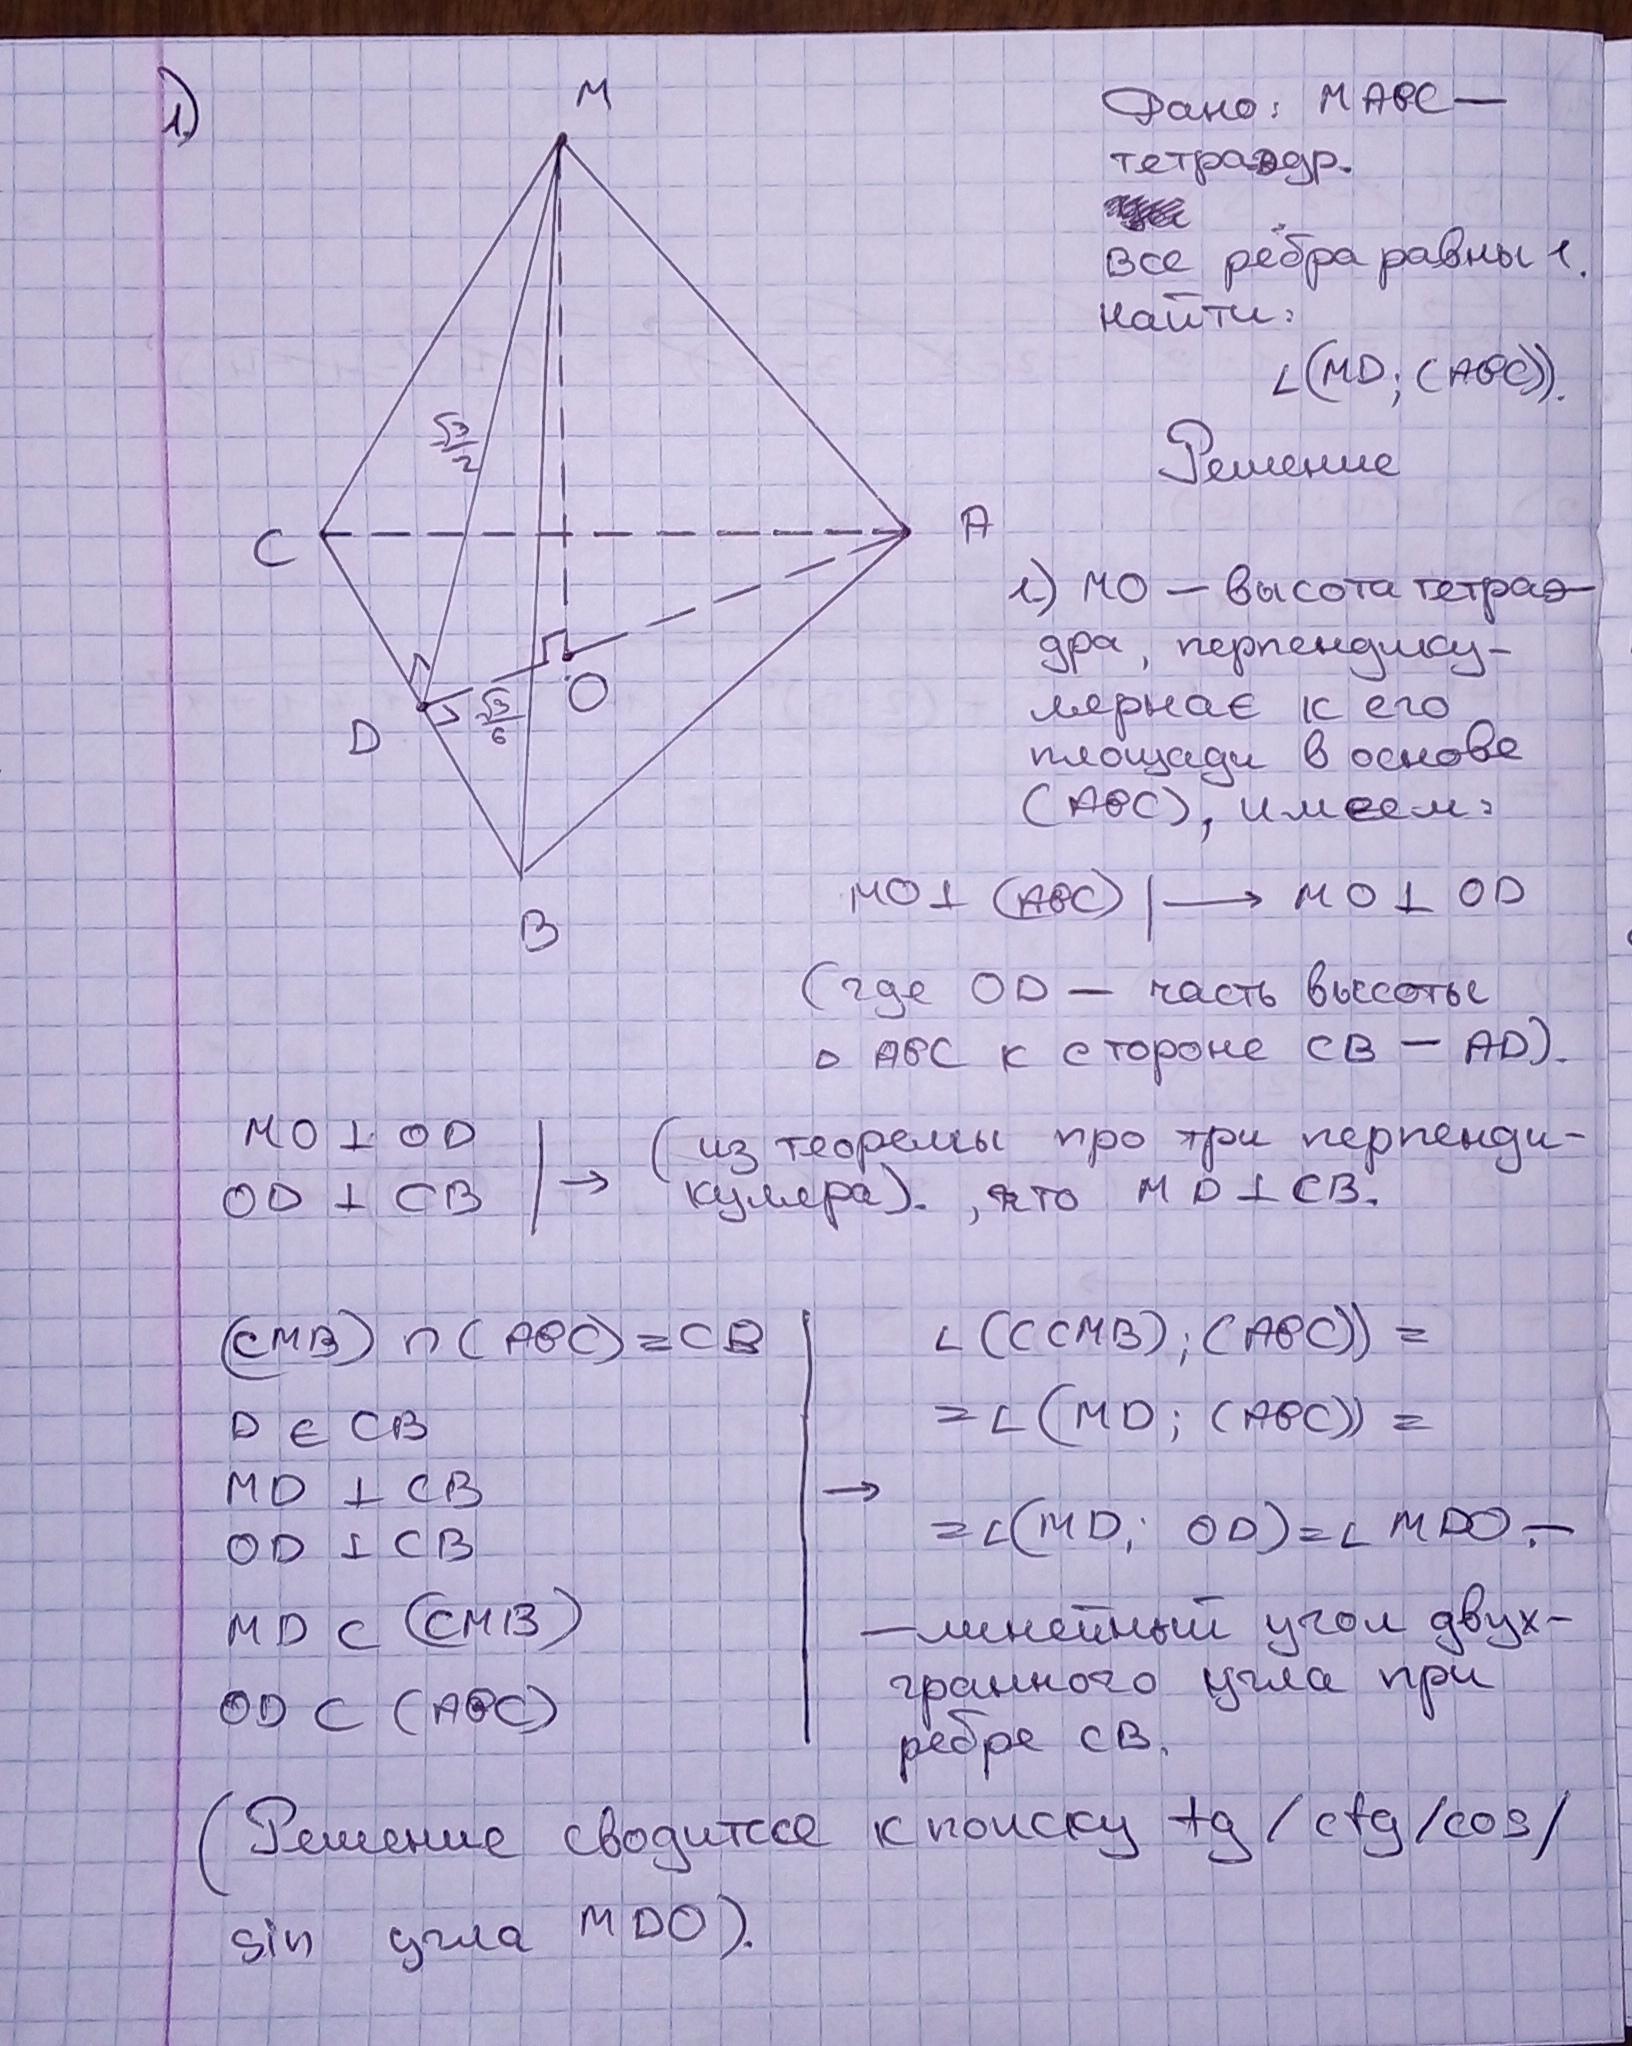 1.)
M
Дано: МАВС —
тетраэдр.
Все рёбра равны 1.
Найти:
∠(MD; (ABC)).
Решение
√3/2
C
A
D
√3/6
O
B
1.) МО — высота тетраэ-
дра, перпендику-
лярная к его
площади в основе
(АВС), имеем:
MO ⊥ (ABC) | → MO ⊥ OD
(где OD — часть высоты
△ АВС к стороне CB — AD).
MO ⊥ OD
OD ⊥ CB
→ (из теоремы про три перпенди-
куляра)., что MD ⊥ CB.
(CMB) ∩ (ABC) = CB
D ∈ CB
MD ⊥ CB
OD ⊥ CB
MD ⊂ (CMB)
OD ⊂ (ABC)
→
∠((CMB); (ABC)) =
= ∠(MD; (ABC)) =
= ∠(MD; OD) = ∠ MDO. —
— линейный угол двух-
гранного угла при
ребре CB.
(Решение сводится к поиску tg / ctg / cos /
sin угла MDO).